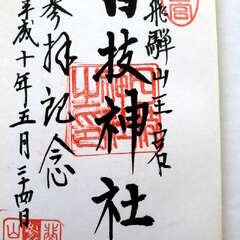 飛騨山王宮
日枝神社
参拝記念
平成十年五月二十四日